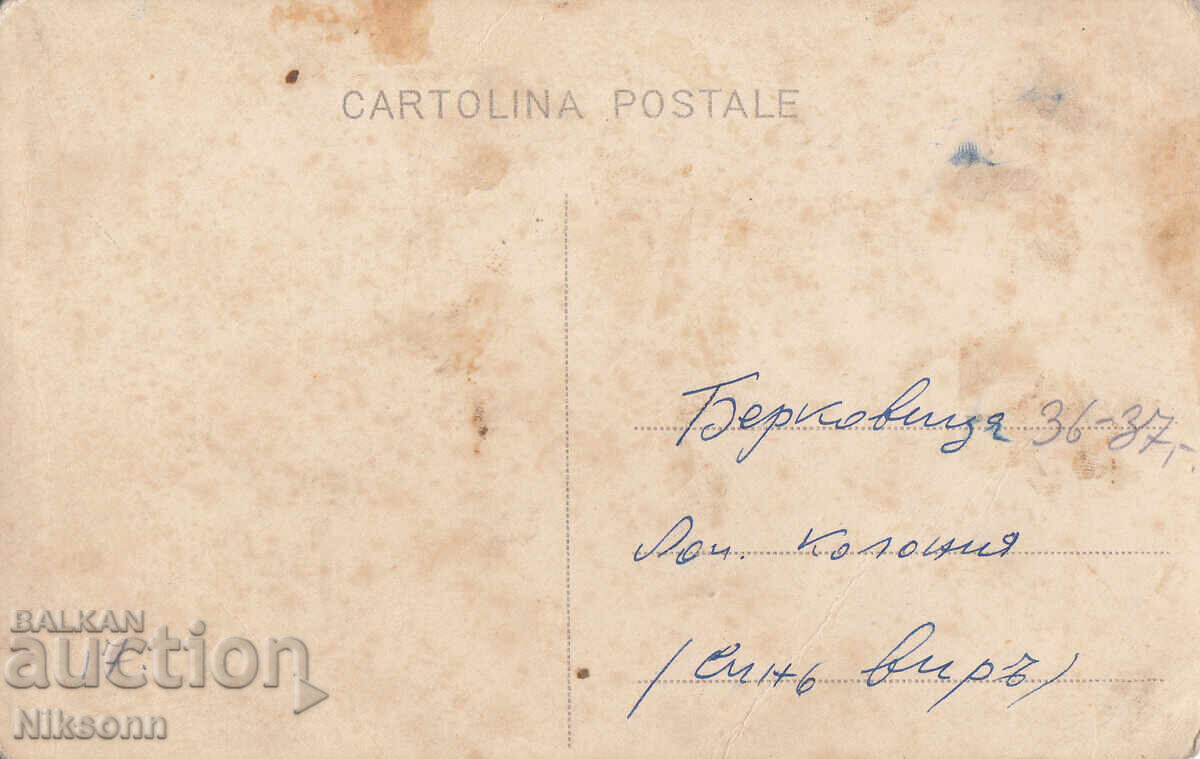 CARTOLINA POSTALE
Берковица 36-37г
колония
(синь виръ)
17.
BALKAN
auction
Niksonn